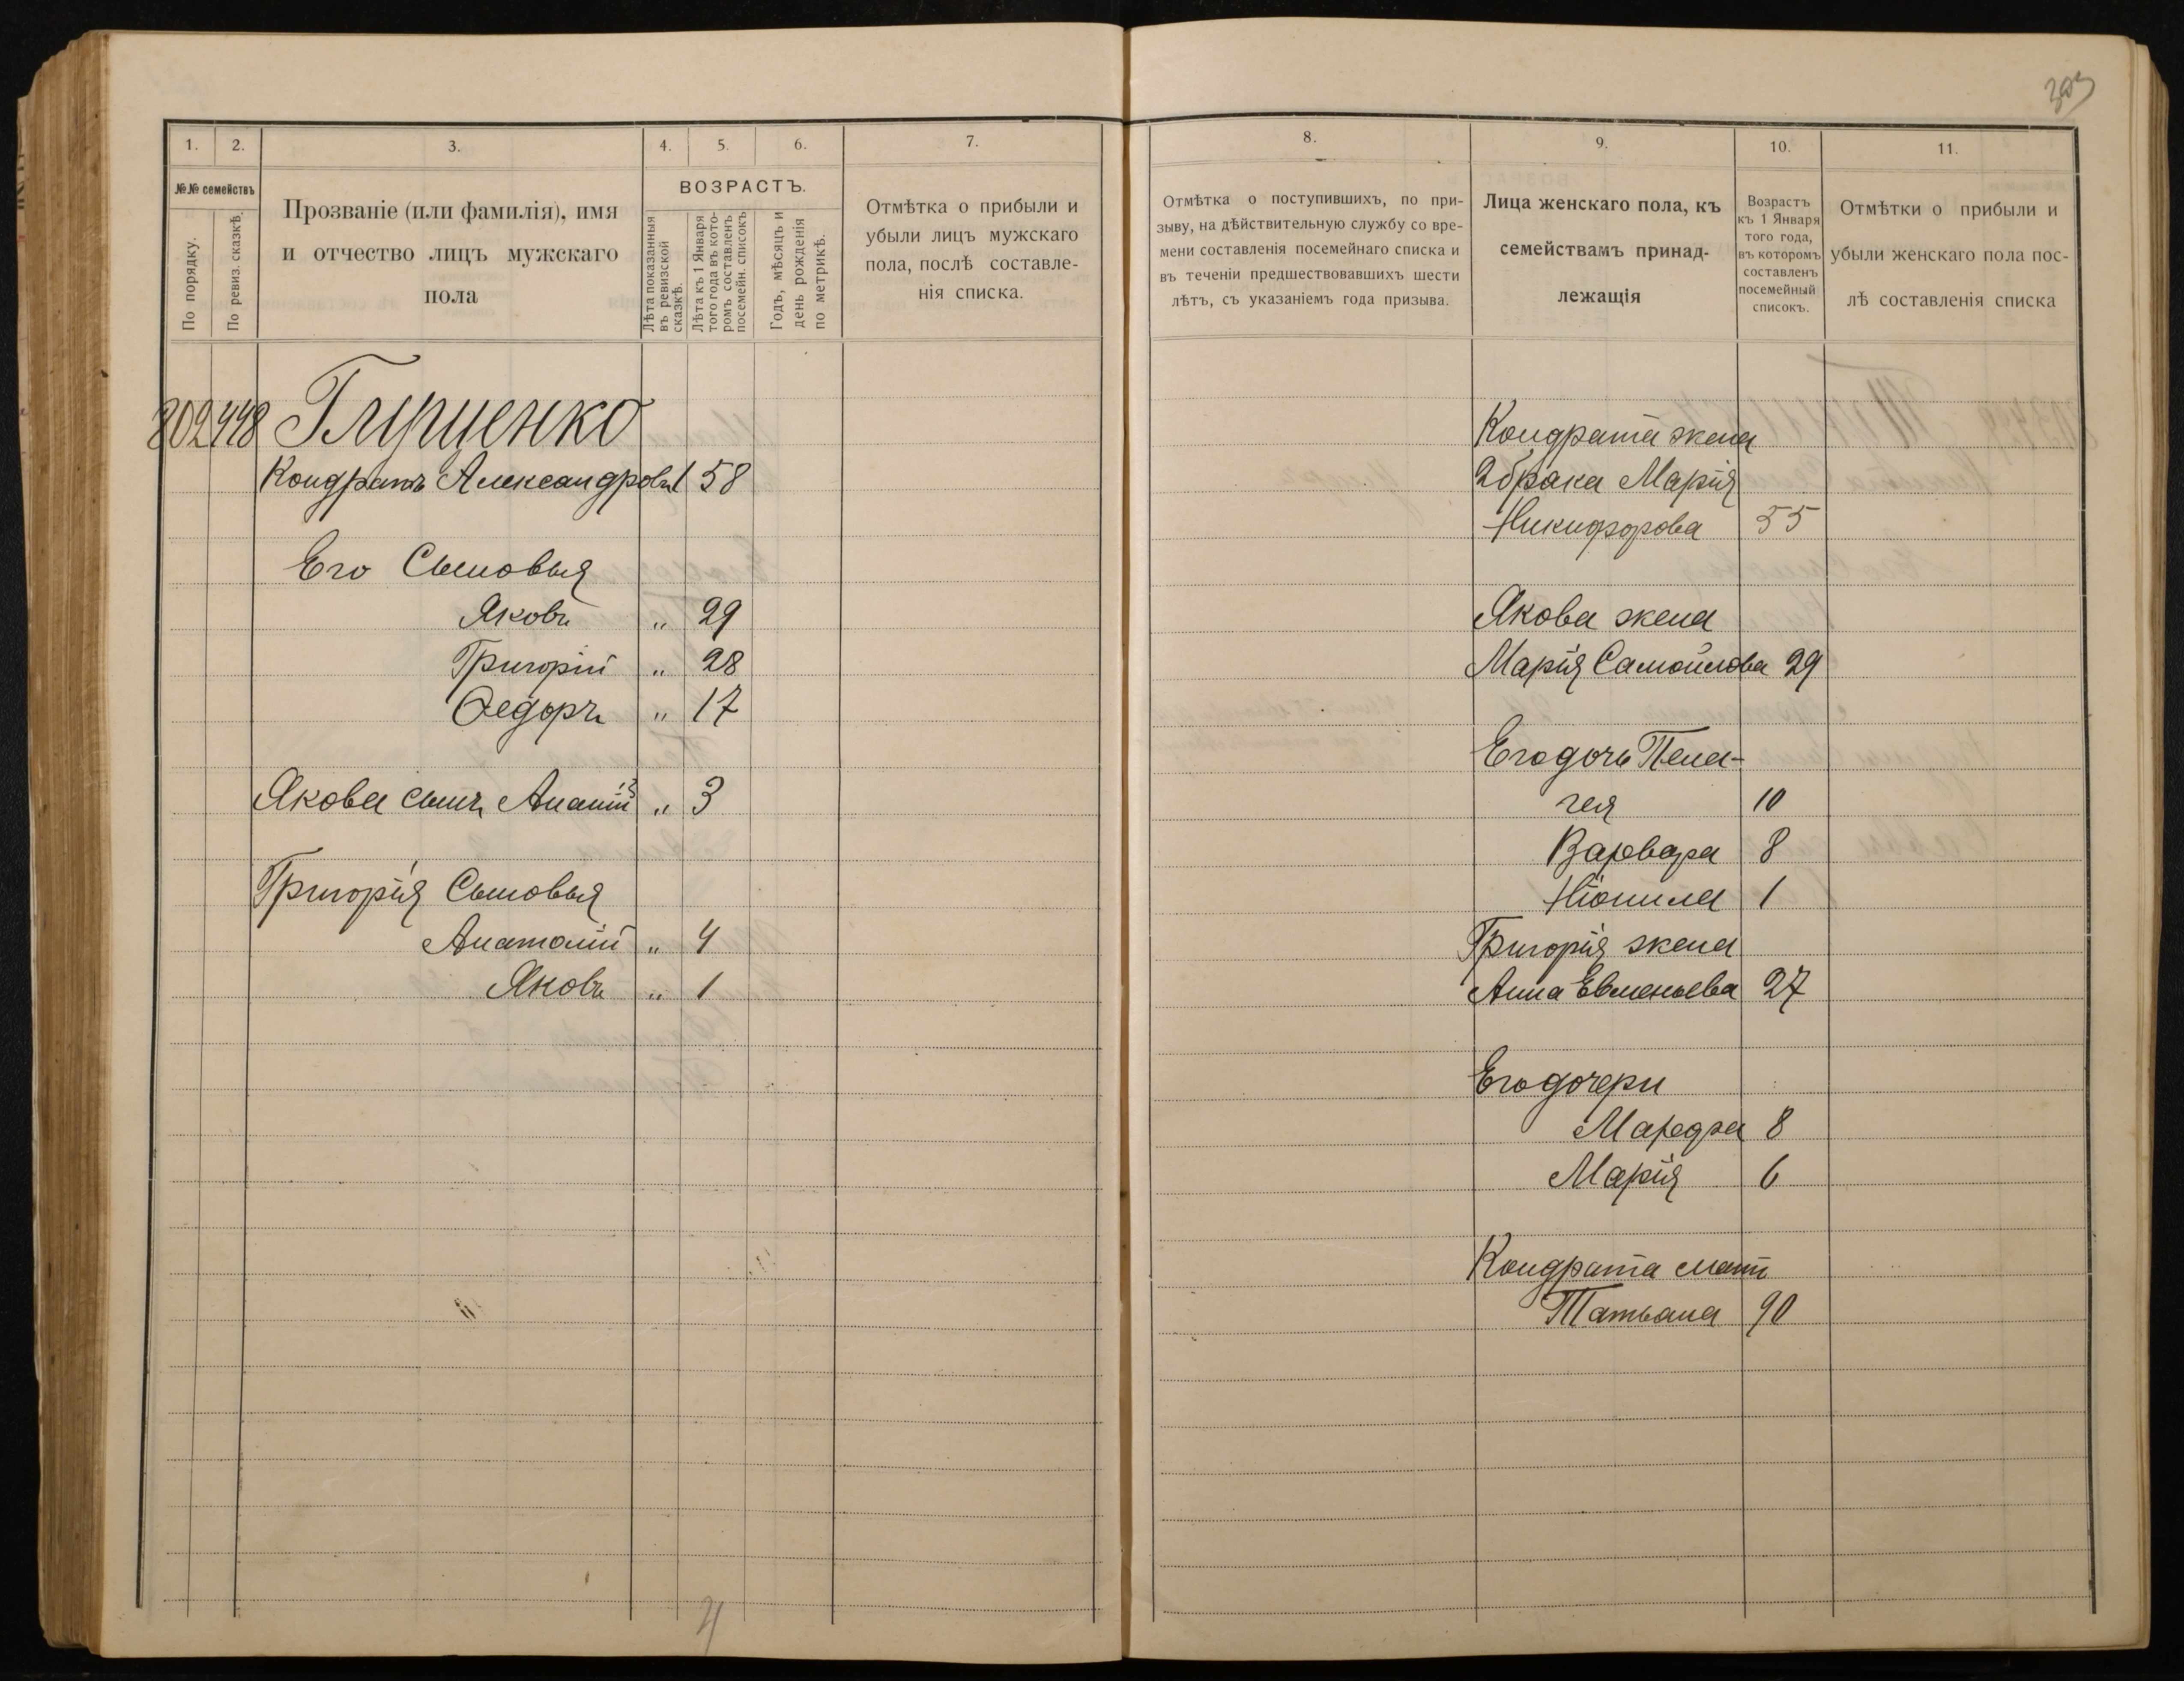 1.
2.
3.
4.
5.
6.
7.
№№ семействъ
По порядку.
По ревиз. сказкѣ.
Прозваніе (или фамилія), имя
и отчество лицъ мужскаго
пола
ВОЗРАСТЪ.
Лѣта показанныя
въ ревизской
сказкѣ.
Лѣта къ 1 Января
того года въ кото-
ромъ составленъ
посемейн. списокъ
Годъ, мѣсяцъ и
день рожденія
по метрикѣ.
Отмѣтка о прибыли и
убыли лицъ мужскаго
пола, послѣ составле-
нія списка.
802 448
Кондратъ Александровъ 1 58
Его Сыновья
Яковъ " 29
Григорій " 28
Ѳедоръ " 17
Якова сынъ Ананій " 3
Григорія Сыновья
Анатолій " 4
Яковъ " 1
8.
9.
10.
11.
Отмѣтка о поступившихъ, по при-
зыву, на дѣйствительную службу со вре-
мени составленія посемейнаго списка и
въ теченіи предшествовавшихъ шести
лѣтъ, съ указаніемъ года призыва.
Лица женскаго пола, къ
семействамъ принад-
лежащія
Возрастъ
къ 1 Января
того года,
въ которомъ
составленъ
посемейный
списокъ.
Отмѣтки о прибыли и
убыли женскаго пола пос-
лѣ составленія списка
Кондрата жена
2 брака Марія
Никифорова 55
Якова жена
Марія Самойлова 29
Его дочь Пела-
гея 10
Варвара 8
Ніонила 1
Григорія жена
Анна Евменьева 27
Его дочери
Марфа 8
Марія 6
Кондрата мать
Татьяна 90